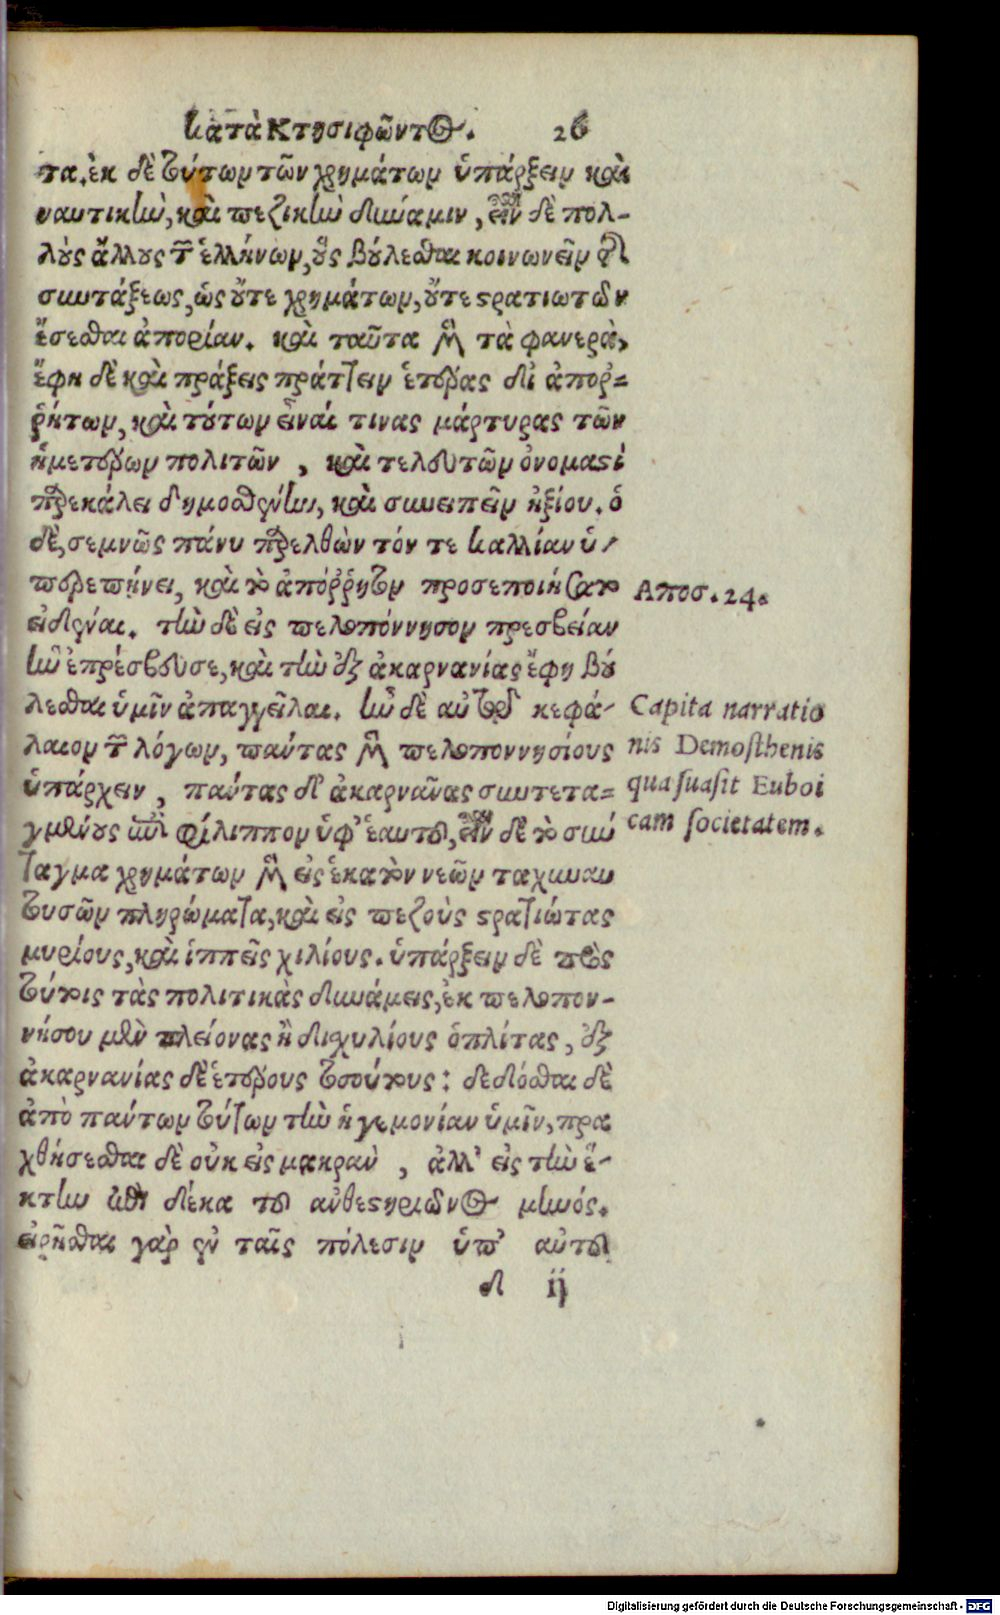 Κατὰ Κτησιφῶντος. 26
τα. ἐκ δὲ τούτων τῶν χρημάτων ὑπάρξειν καὶ
ναυτικὴν, καὶ πεζικὴν δύναμιν, εἶναι δὲ πολ-
λοὺς ἄλλους τῶν ἑλλήνων, οὓς βούλεσθαι κοινωνεῖν τῆς
συντάξεως, ὡς οὔτε χρημάτων, οὔτε στρατιωτῶν
ἔσεσθαι ἀπορίαν. καὶ ταῦτα μὲν τὰ φανερὰ,
ἔφη δὲ καὶ πράξεις πράττειν ἑτέρας δι' ἀπορ-
ῥήτων, καὶ τούτων εἶναί τινας μάρτυρας τῶν
ἡμετέρων πολιτῶν, καὶ τελευτῶν ὀνομαστὶ
παρεκάλει δημοσθένην, καὶ συνειπεῖν ἠξίου. ὁ
δὲ, σεμνῶς πάνυ παρελθὼν τόν τε καλλίαν ὑ-
περεπῄνει, καὶ τὸ ἀπόῤῥητον προσεποιήσατο
εἰδέναι. τὴν δὲ εἰς πελοπόννησον πρεσβείαν
ἣν ἐπρέσβευσε, καὶ τὴν ἐξ ἀκαρνανίας ἔφη βού
λεσθαι ὑμῖν ἀπαγγεῖλαι. ἦν δὲ αὐτῷ κεφά-
λαιον τῶν λόγων, πάντας μὲν πελοποννησίους
ὑπάρχειν, πάντας δ' ἀκαρνᾶνας συντετα-
γμένους ἐπὶ φίλιππον ὑφ' ἑαυτοῦ, εἶναι δὲ τὸ σύν
ταγμα χρημάτων μὲν εἰς ἑκατὸν νεῶν ταχυναυ
τουσῶν πληρώματα, καὶ εἰς πεζοὺς στρατιώτας
μυρίους, καὶ ἱππεῖς χιλίους. ὑπάρξειν δὲ πρὸς
τούτοις τὰς πολιτικὰς δυνάμεις, ἐκ πελοπον-
νήσου μὲν πλείονας ἢ δισχιλίους ὁπλίτας, ἐξ
ἀκαρνανίας δὲ ἑτέρους τοσούτους: δεδόσθαι δὲ
ἀπὸ πάντων τούτων τὴν ἡγεμονίαν ὑμῖν, πρα
χθήσεσθαι δὲ οὐκ εἰς μακρὰν, ἀλλ' εἰς τὴν ἕ-
κτην ἐπὶ δέκα τοῦ ἀνθεστηριῶνος μηνός.
εἰρῆσθαι γὰρ ἐν ταῖς πόλεσιν ὑπ' αὐτοῦ
δ ij
Αποσ. 24.
Capita narratio
nis Demosthenis
qua suasit Euboi
cam societatem.
Digitalisierung gefördert durch die Deutsche Forschungsgemeinschaft - DFG